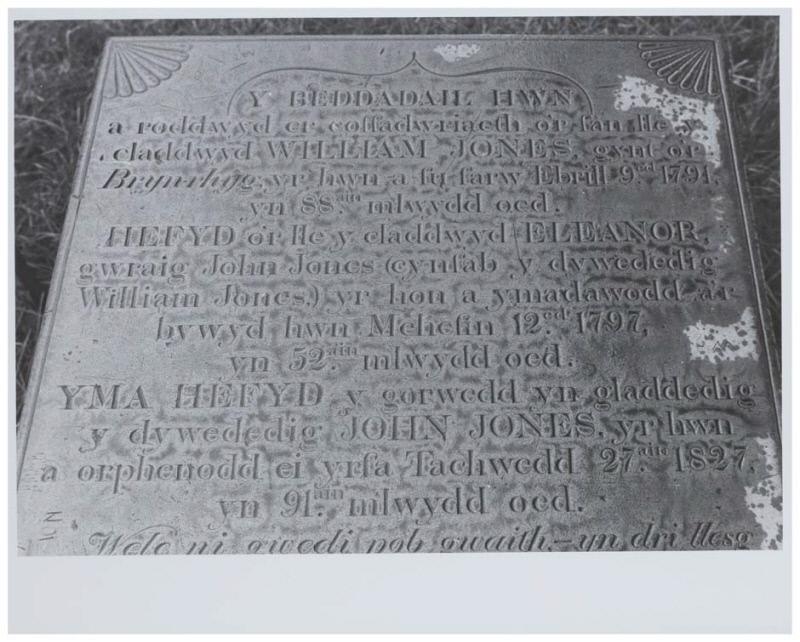 Y BEDDADAIL HWN
a roddwyd er coffadwriaeth o'r fan lle y
claddwyd WILLIAM JONES, gynt o'r
Bryn-rhyg, yr hwn a fu farw Ebrill 9.ed 1791,
yn 88.ain mlwydd oed.
HEFYD o'r lle y claddwyd ELEANOR,
gwraig John Jones (cynfab y dywededig
William Jones,) yr hon a ymadawodd a'r
bywyd hwn Mehefin 12.ed 1797,
yn 52.ain mlwydd oed.
YMA HEFYD y gorwedd yn gladdedig
y dywededig JOHN JONES, yr hwn
a orphenodd ei yrfa Tachwedd 27.ain 1827,
yn 91.ain mlwydd oed.
Wele ni gwedi pob gwaith,—yn dri llesg